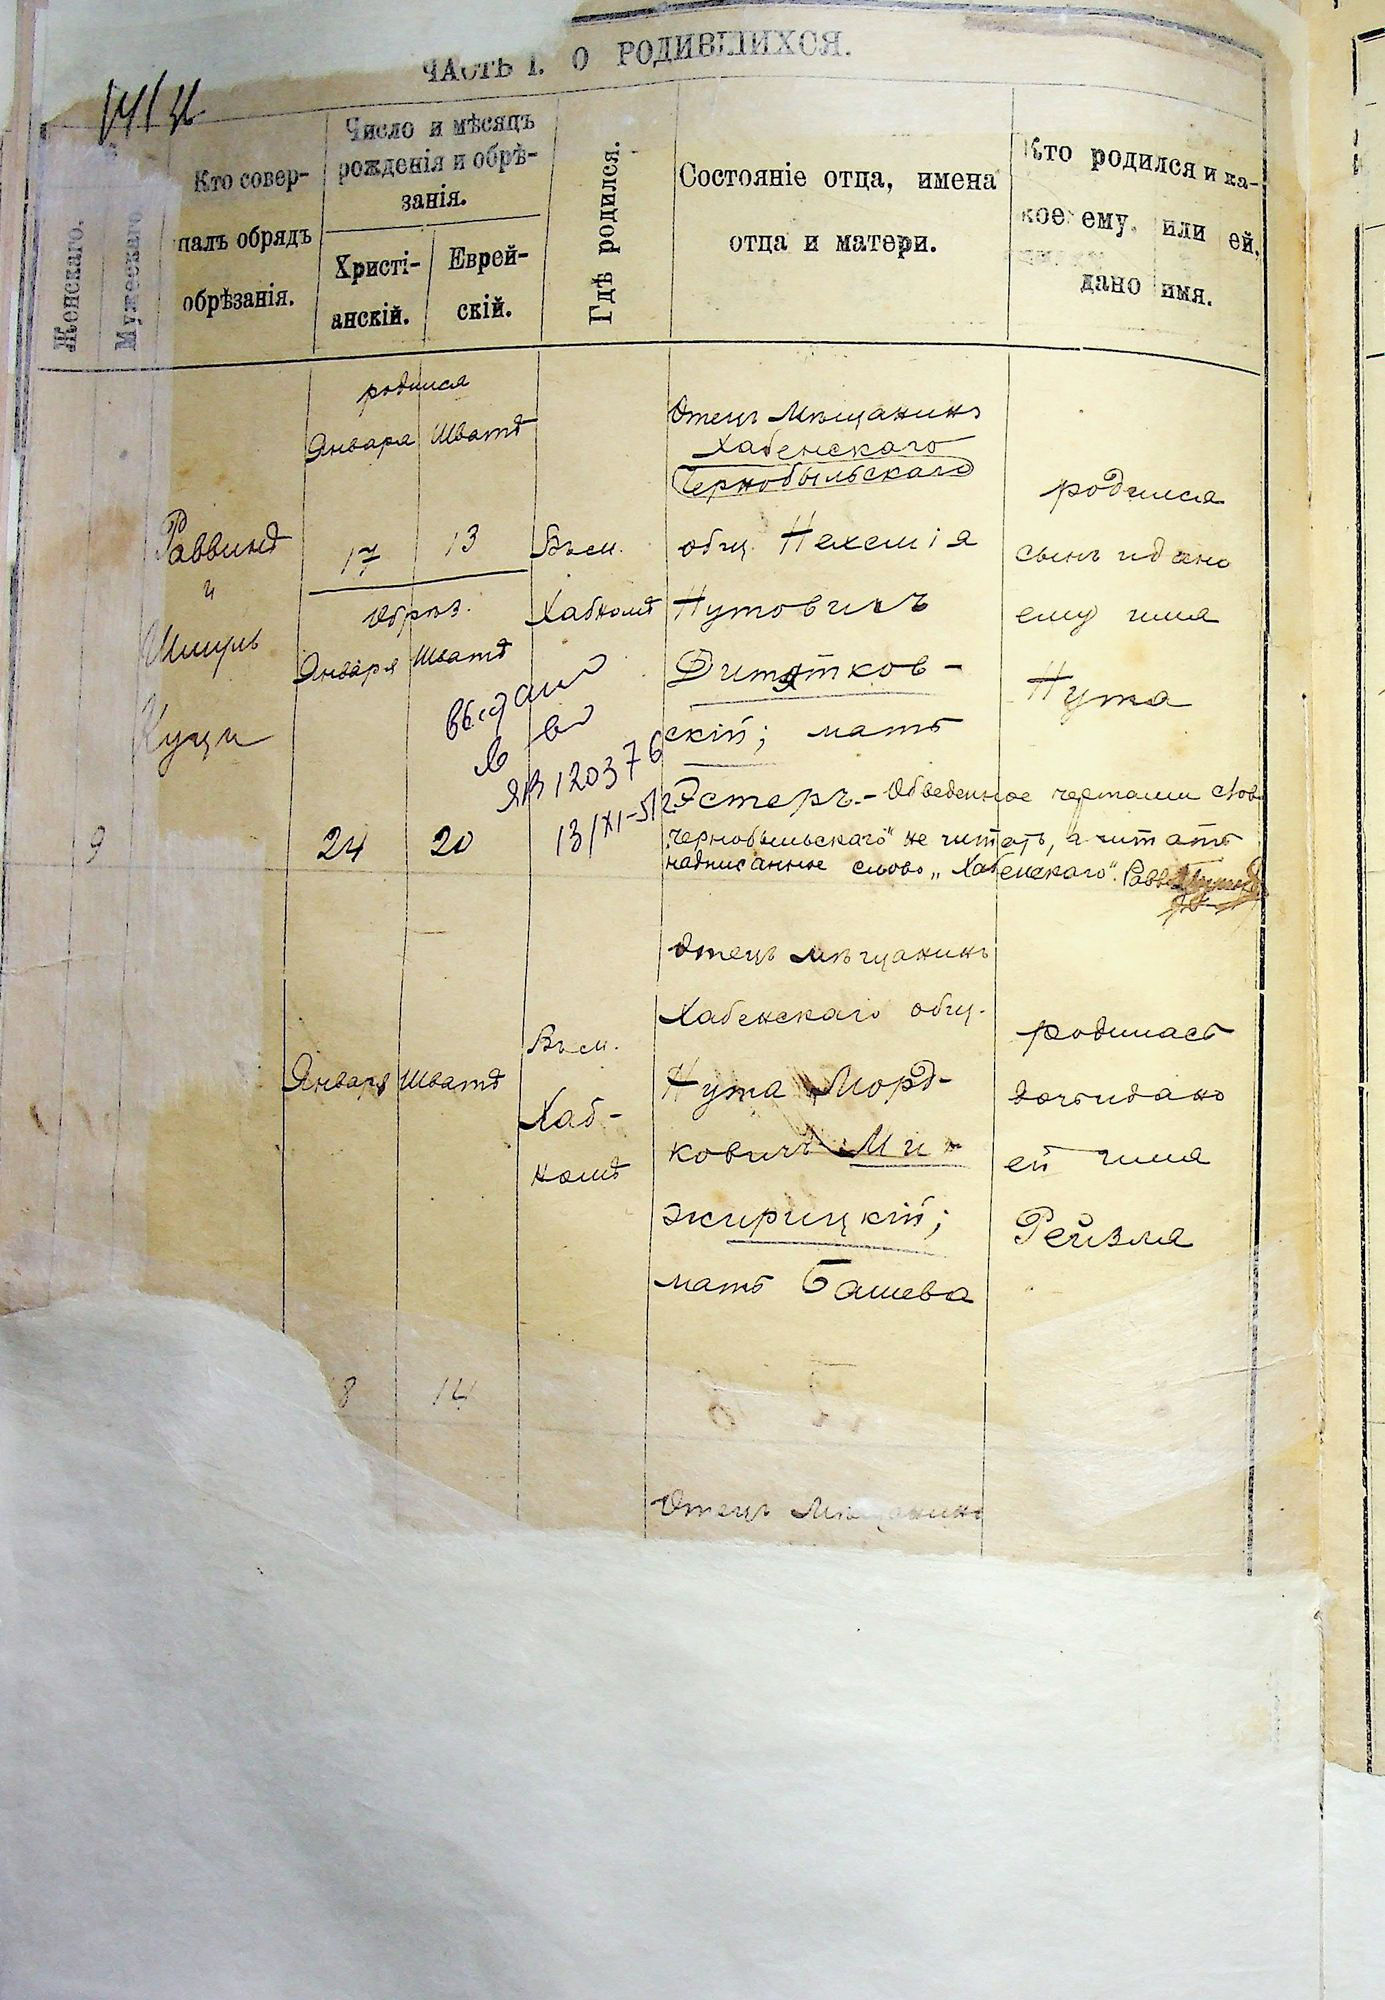 ЧАСТЬ I. О РОДИВШИХСЯ.
Женскаго.
Мужескаго
Кто совер-
шалъ обрядъ
обрѣзанія.
Число и мѣсяцъ
рожденія и обрѣ-
занія.
Христі-
анскій.
Еврей-
скій.
Гдѣ родился.
Состояніе отца, имена
отца и матери.
Кто родился и ка-
кое ему, или ей,
дано имя.
9
Раввинъ
и
Шмуль
родился
Января Шватъ
17 13
Обрѣз.
Января Шватъ
24 20
Въ м.
Хабномъ
выдано
ЯВ 120376
Отецъ Мѣщанинъ
Хабенскаго
Чернобыльскаго
общ. Нехемія
Нутовичъ
Дитятков-
скій; мать
Эстеръ. – Обведенное чертами слово
"Чернобыльскаго" не читать, а читать
надписанное слово „Хабенскаго". Равв.
родился
сынъ и дано
ему имя
Нута
Января Шватъ
8 14
Въ м.
Хаб-
номъ
Отецъ Мѣщанинъ
Хабенскаго общ.
Нута Морд-
ковичъ Ми-
жирицкій;
мать Башева
родилась
дочь и дано
ей имя
Рейзля
Отецъ Мѣщанинъ